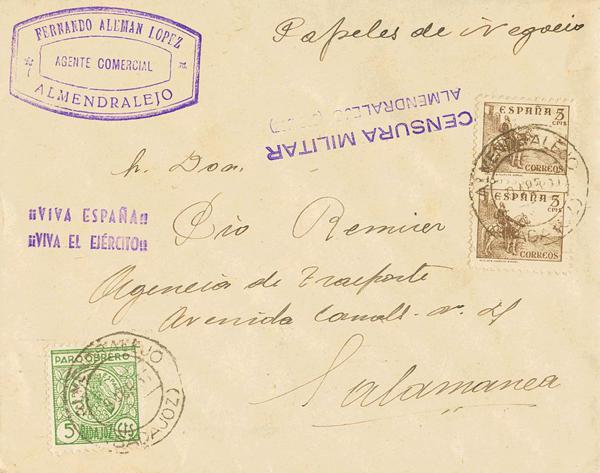 FERNANDO ALEMAN LOPEZ
AGENTE COMERCIAL
ALMENDRALEJO
Papeles de Negocio
CENSURA MILITAR
ALMENDRALEJO
ESPAÑA 5
CTS
CORREOS
ESPAÑA 5
CTS
CORREOS
ALMENDRALEJO
Don
¡¡VIVA ESPAÑA!!
¡¡VIVA EL EJÉRCITO!!
Pio
Agencia de Trasporte
Avenida
Salamanca
PARO OBRERO
5 BADAJOZ CTS
(BADAJOZ)